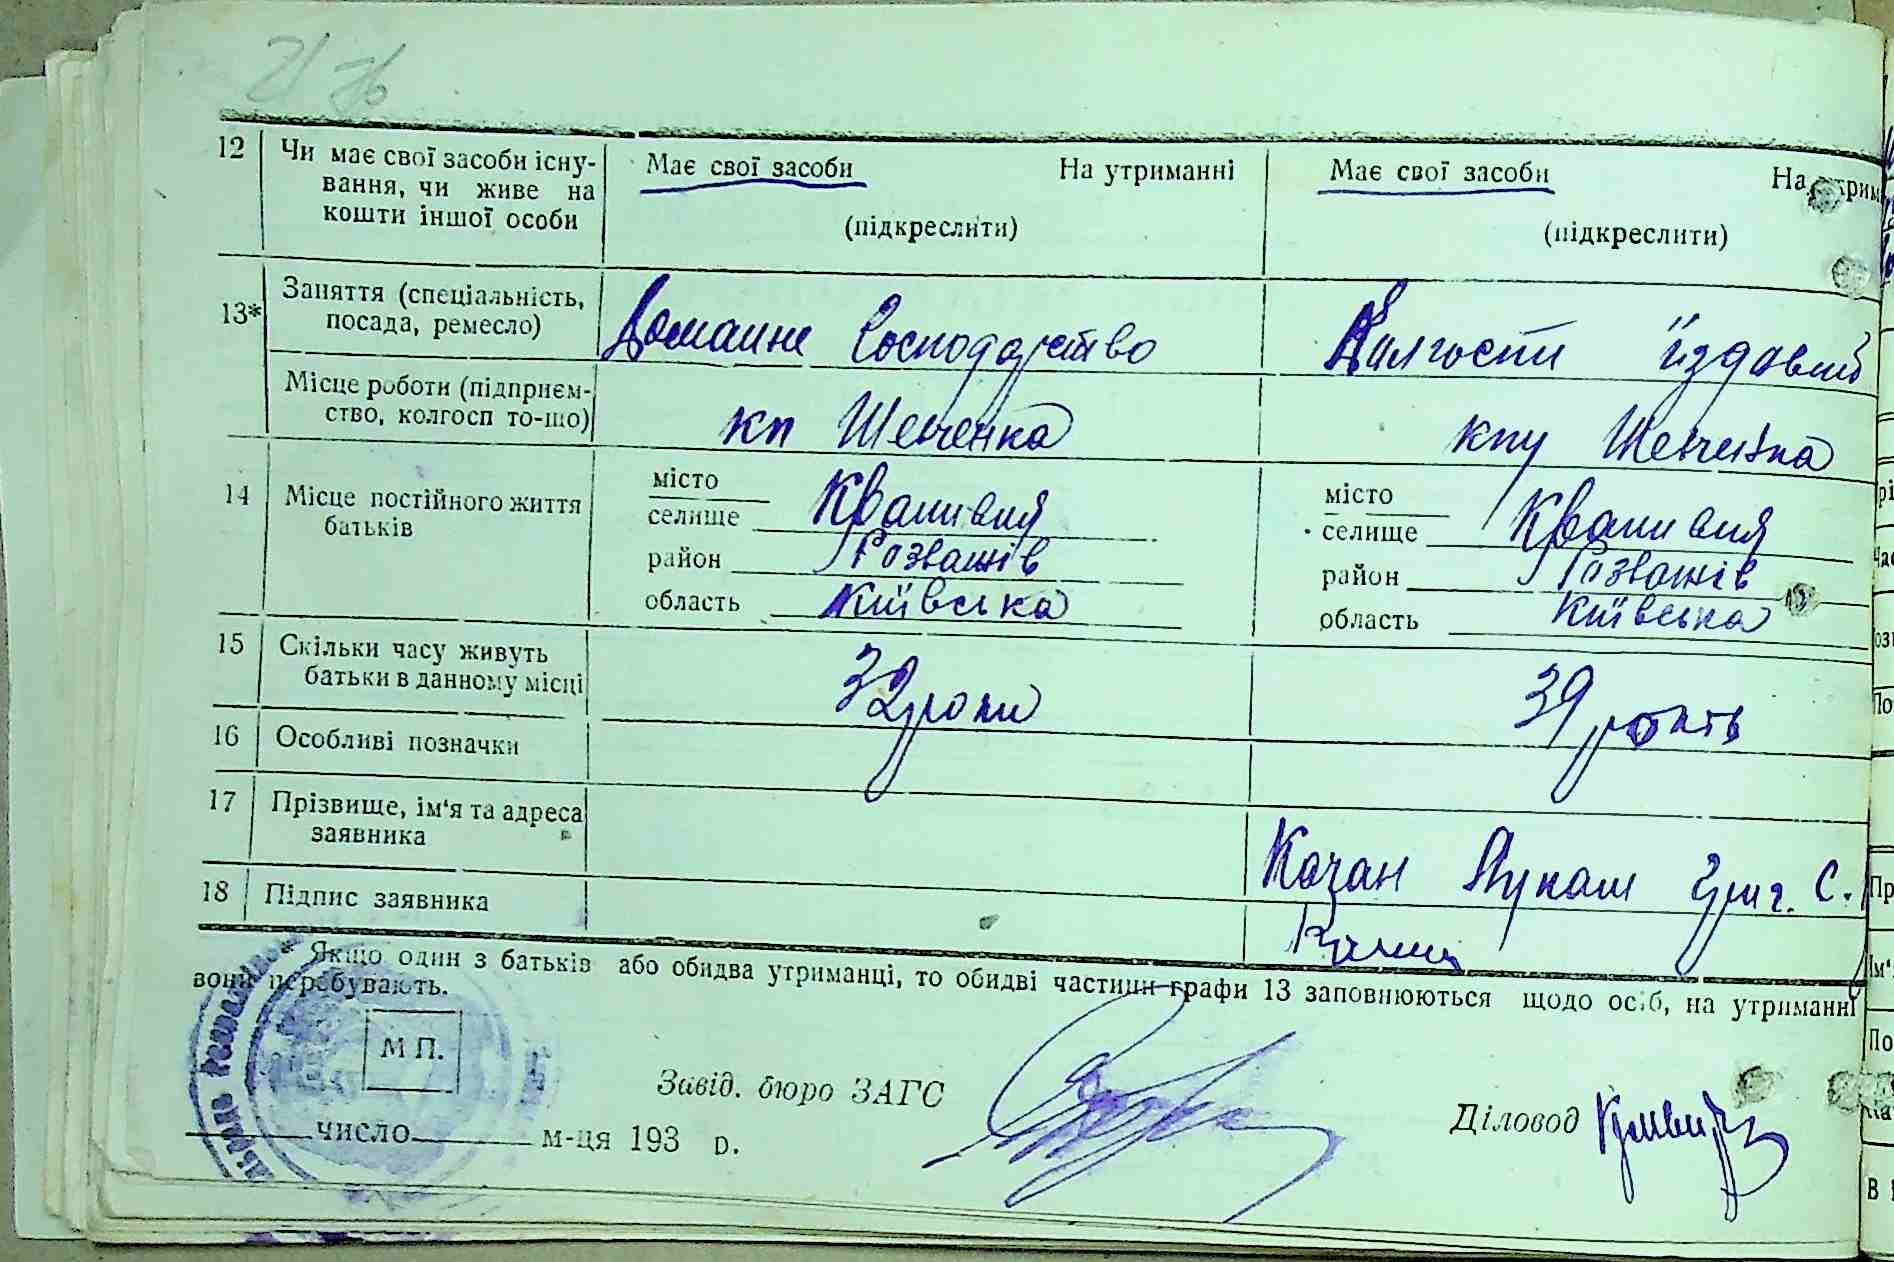 12 Чи має свої засоби існу- Має свої засоби На утриманні Має свої засоби На утрим
вання, чи живе на
кошти іншої особи (підкреслити) (підкреслити)
13* Заняття (спеціальність,
посада, ремесло) Домашне Господарство їздовий
Місце роботи (підприєм-
ство, колгосп то-що) кп Шевченка кпу Шевченка
14 Місце постійного життя
батьків
місто місто
селище Кропивня селище Кропивня
район Розважів район Розважів
область Київська область Київська
15 Скільки часу живуть
батьки в данному місці 32 роки 39 років
16 Особливі позначки
17 Прізвище, ім'я та адреса
заявника Козан Лукаш Григ. С.
18 Підпис заявника
* Якщо один з батьків або обидва утриманці, то обидві частини графи 13 заповнюються щодо осіб, на утриманні
вони перебувають.
М П.
Завід. бюро ЗАГС
Діловод
число м-ця 193 р.